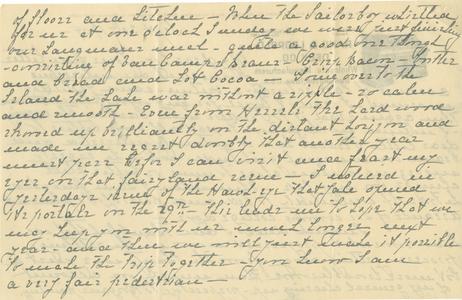 of floor and kitchen When the Sailor boy whistled
for us at one o'clock Sunday we were just finishing
our Langmans meal - quite a good one though
- consisting of Van Camps Beans - Crisp Bacon - Butter
and bread and hot Cocoa - Going over to the
Island the Lake was without a ripple - so calm
and smooth - Even from the Lord wood
showed up brilliantly on the distant horizon and
made me regret doubly that another year
must pass before I can visit and feast my
eyes on that fairyland scene - I noticed in
Yesterdays issue of the Hawkeye that Yale opened
its portals on the 29th - This leads me to hope that we
may keep you with us much longer next
year - and then we will just make it possible
to make the trip together - You know I am
a very fair pedestrian -